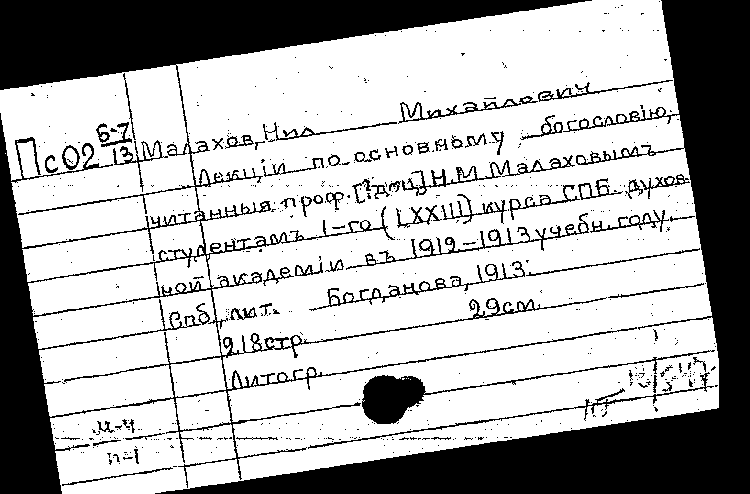 ПсО2 Б-7/13 Малахов, Нил Михайлович
Лекцiи по основному богословiю,
читанныя проф. [?доц] Н.М. Малаховымъ
студентамъ I-го (LXXIII) курса СПБ. духов
ной академiи въ 1912-1913 учебн. году.
Спб., лит. Богданова, 1913.
218стр. 29см.
Литогр.
м-ч
п-1